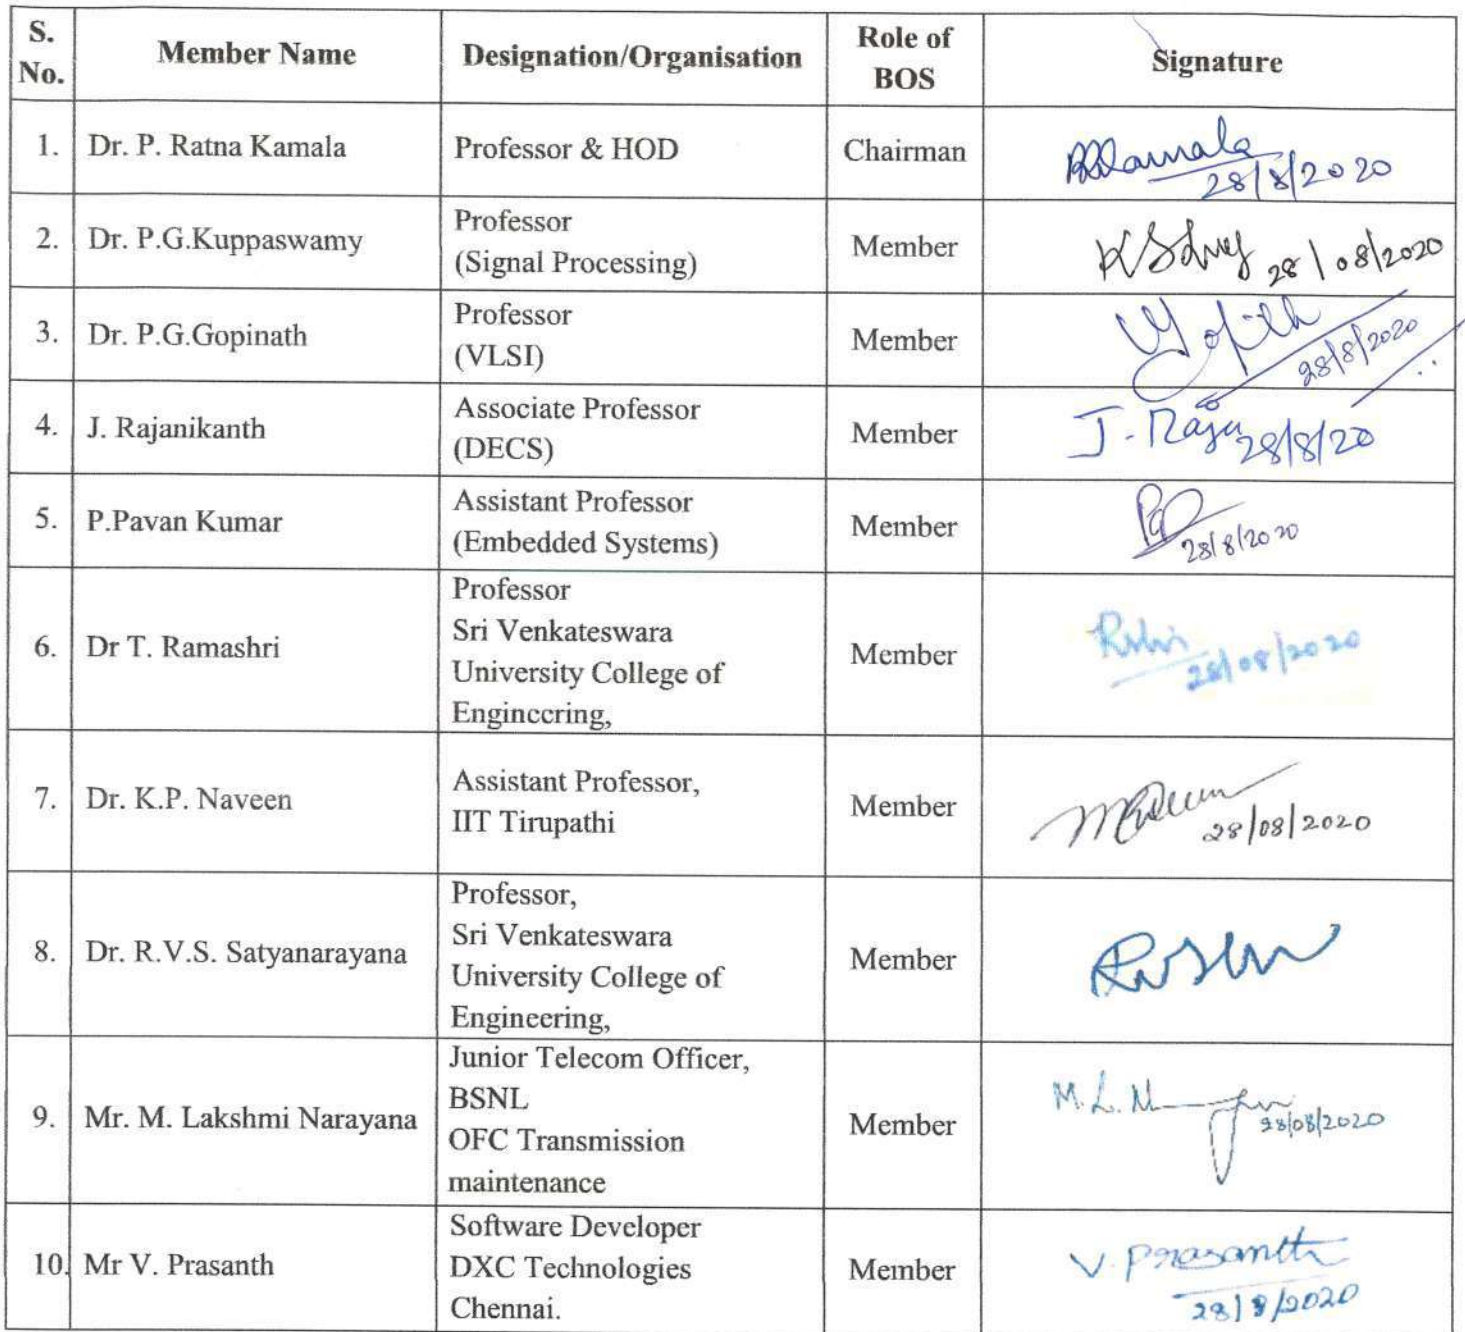 S. No. Member Name Designation/Organisation Role of BOS Signature
1. Dr. P. Ratna Kamala Professor & HOD Chairman
28/8/2020
2. Dr. P.G.Kuppaswamy Professor
(Signal Processing) Member 28/08/2020
3. Dr. P.G.Gopinath Professor
(VLSI) Member 28/8/2020
4. J. Rajanikanth Associate Professor
(DECS) Member J. Raju 28/8/20
5. P.Pavan Kumar Assistant Professor
(Embedded Systems) Member 28/8/2020
6. Dr T. Ramashri Professor
Sri Venkateswara
University College of
Engineering, Member 28/08/2020
7. Dr. K.P. Naveen Assistant Professor,
IIT Tirupathi Member 28/08/2020
8. Dr. R.V.S. Satyanarayana Professor,
Sri Venkateswara
University College of
Engineering, Member
9. Mr. M. Lakshmi Narayana Junior Telecom Officer,
BSNL
OFC Transmission
maintenance Member M.L. 28/08/2020
10. Mr V. Prasanth Software Developer
DXC Technologies
Chennai. Member V. Prasanth
28/8/2020